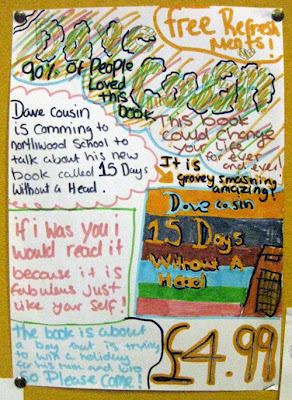 free Refresh
ments!
Dave
Cousin
90% of People
Loved
this
book
This book
could change
your life
for ever
and ever!
Dave Cousin
is comming to
northwood School to
talk about his new
book called 15 Days
without a Head.
It is
grovey smashing
amazing!
Dave cosin
15 Days
Without A
Head
if i was you i
would read it
because it is
fabulous just
like your self!
the book is about
a boy that is trying
to win a holiday
for his mum and bro
So Please come!
£4.99